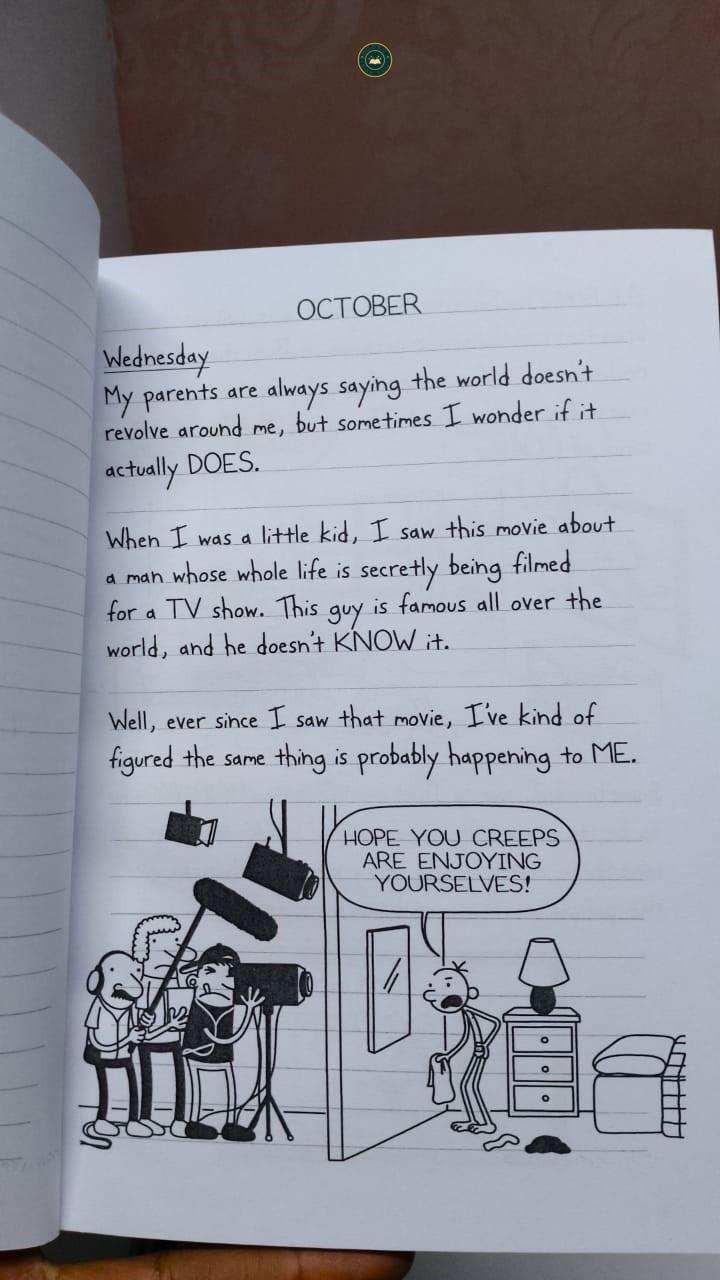 OCTOBER
Wednesday
My parents are always saying the world doesn't
revolve around me, but sometimes I wonder if it
actually DOES.
When I was a little kid, I saw this movie about
a man whose whole life is secretly being filmed
for a TV show. This guy is famous all over the
world, and he doesn't KNOW it.
Well, ever since I saw that movie, I've kind of
figured the same thing is probably happening to ME.
HOPE YOU CREEPS
ARE ENJOYING
YOURSELVES!